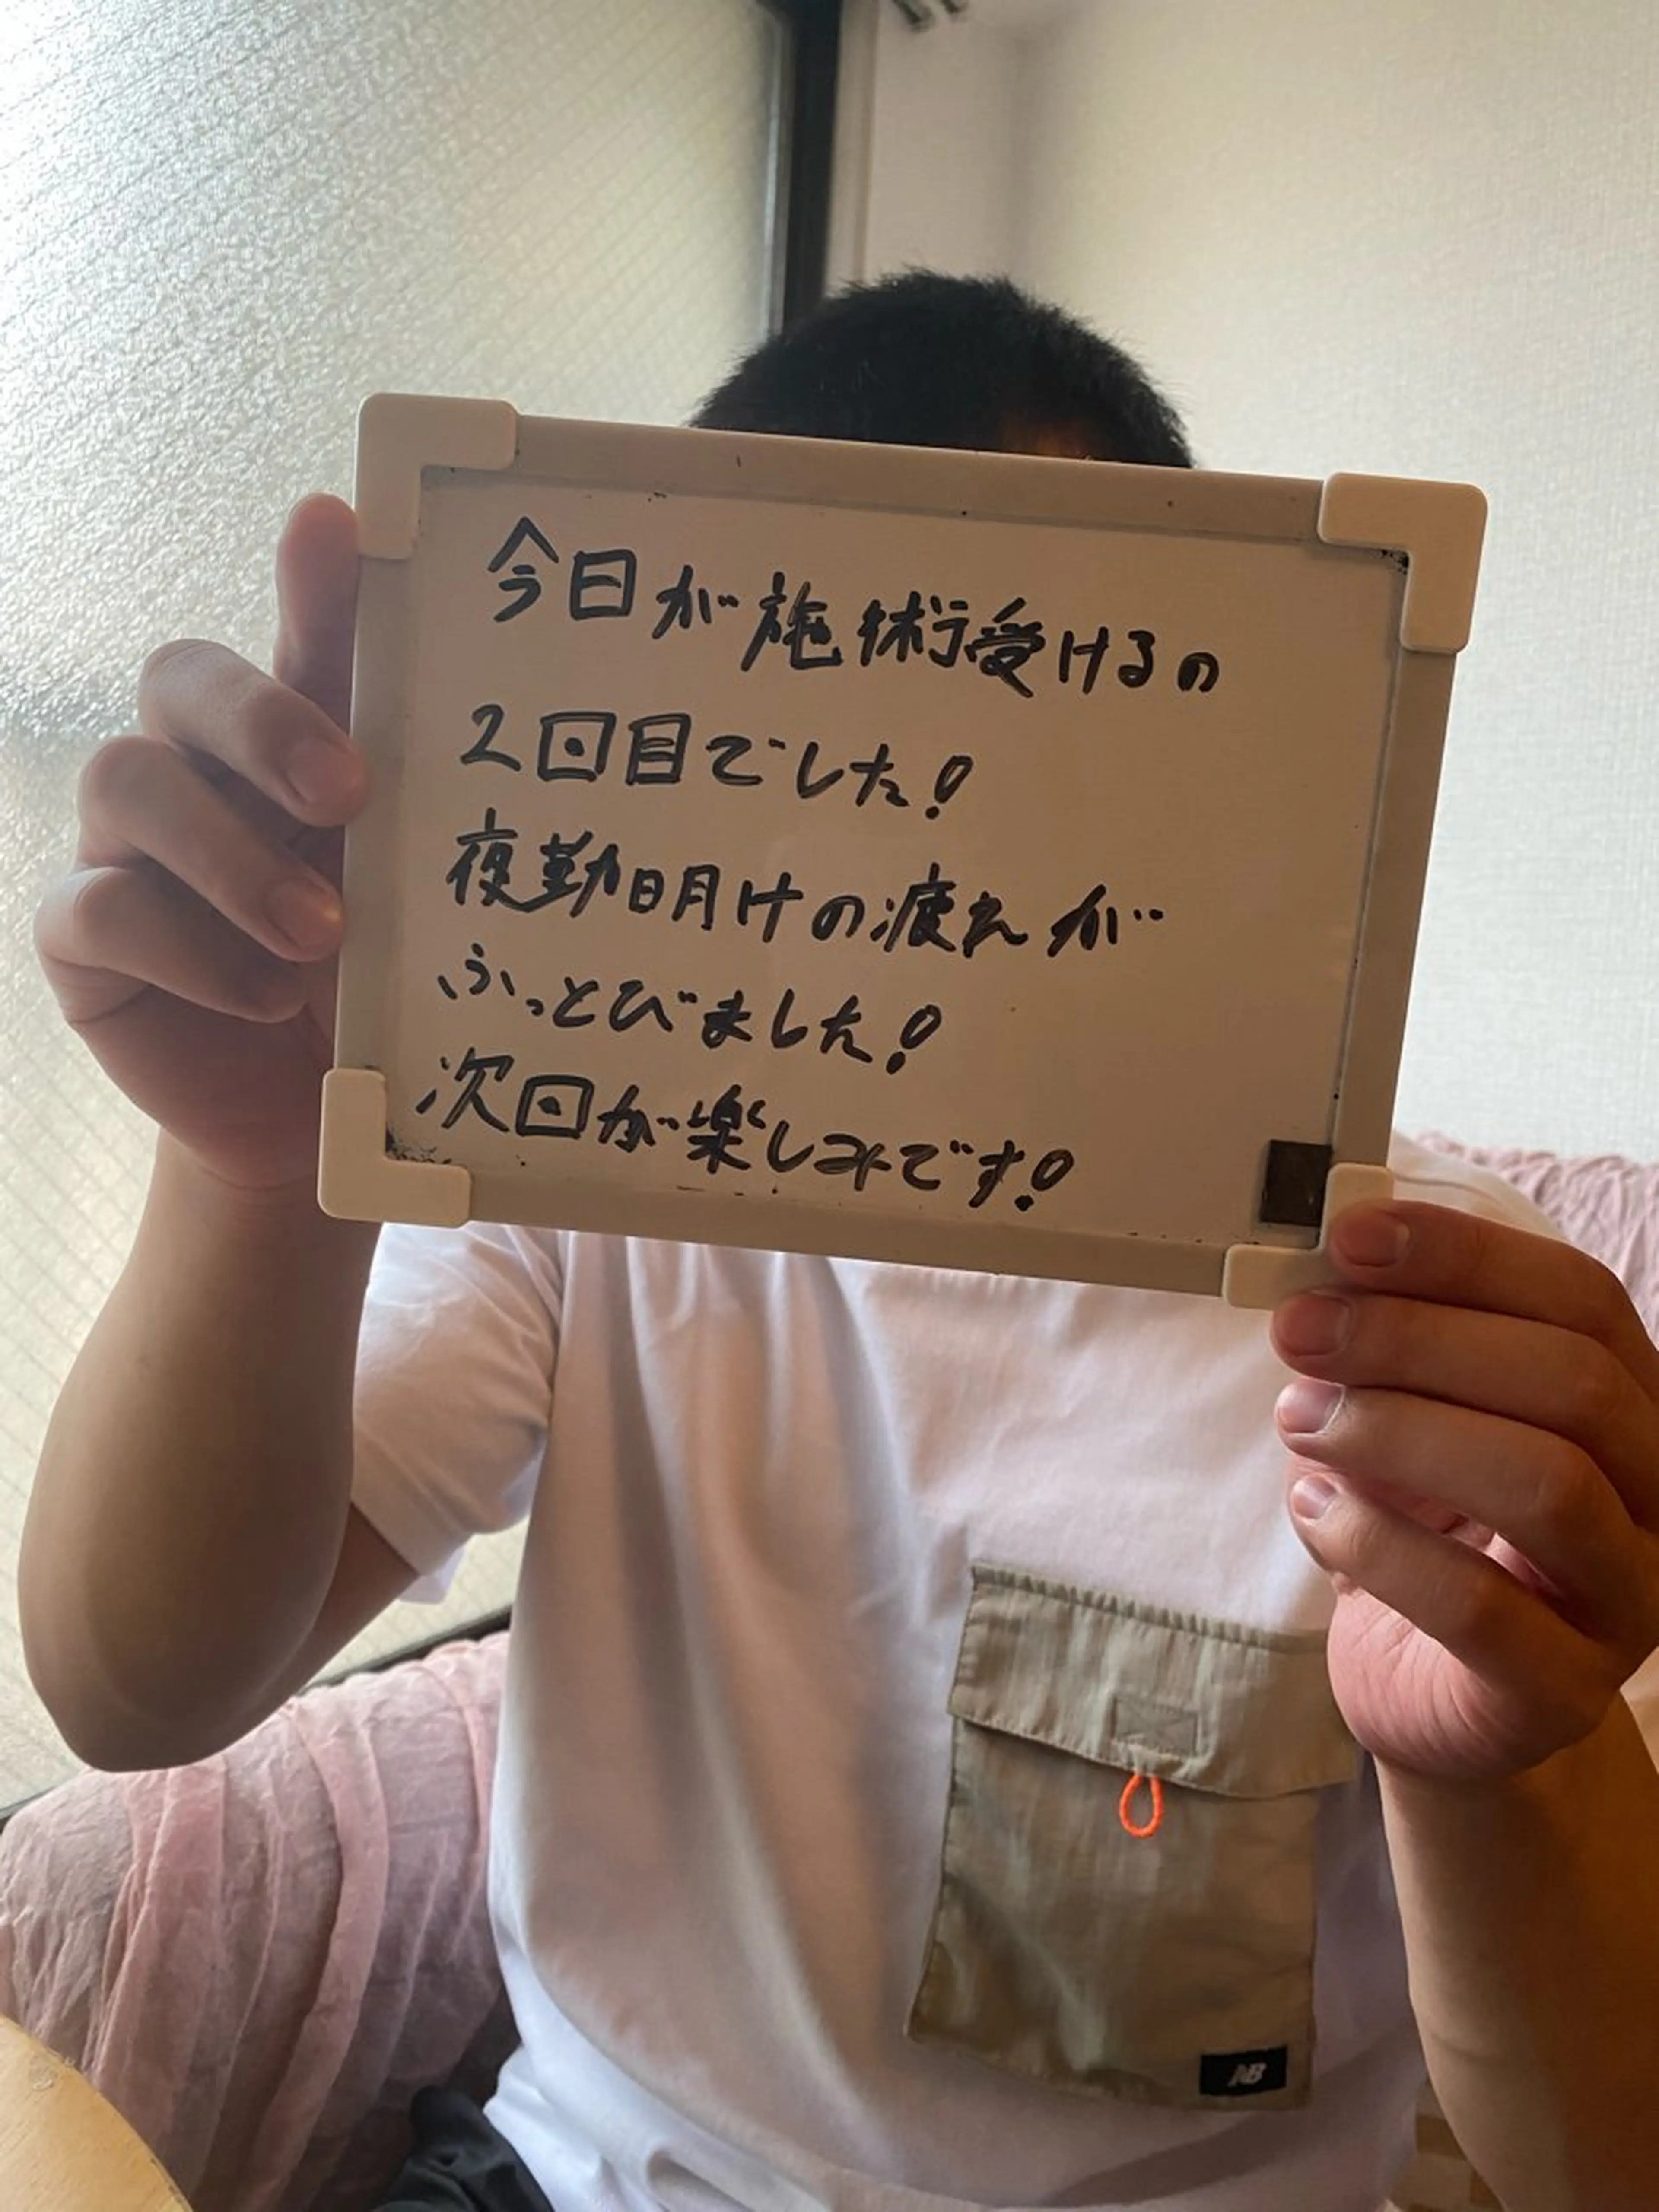 今日が施術受けるの
2回目でした!
夜勤明けの疲れが
ふっとびました!
次回が楽しみです!
NB